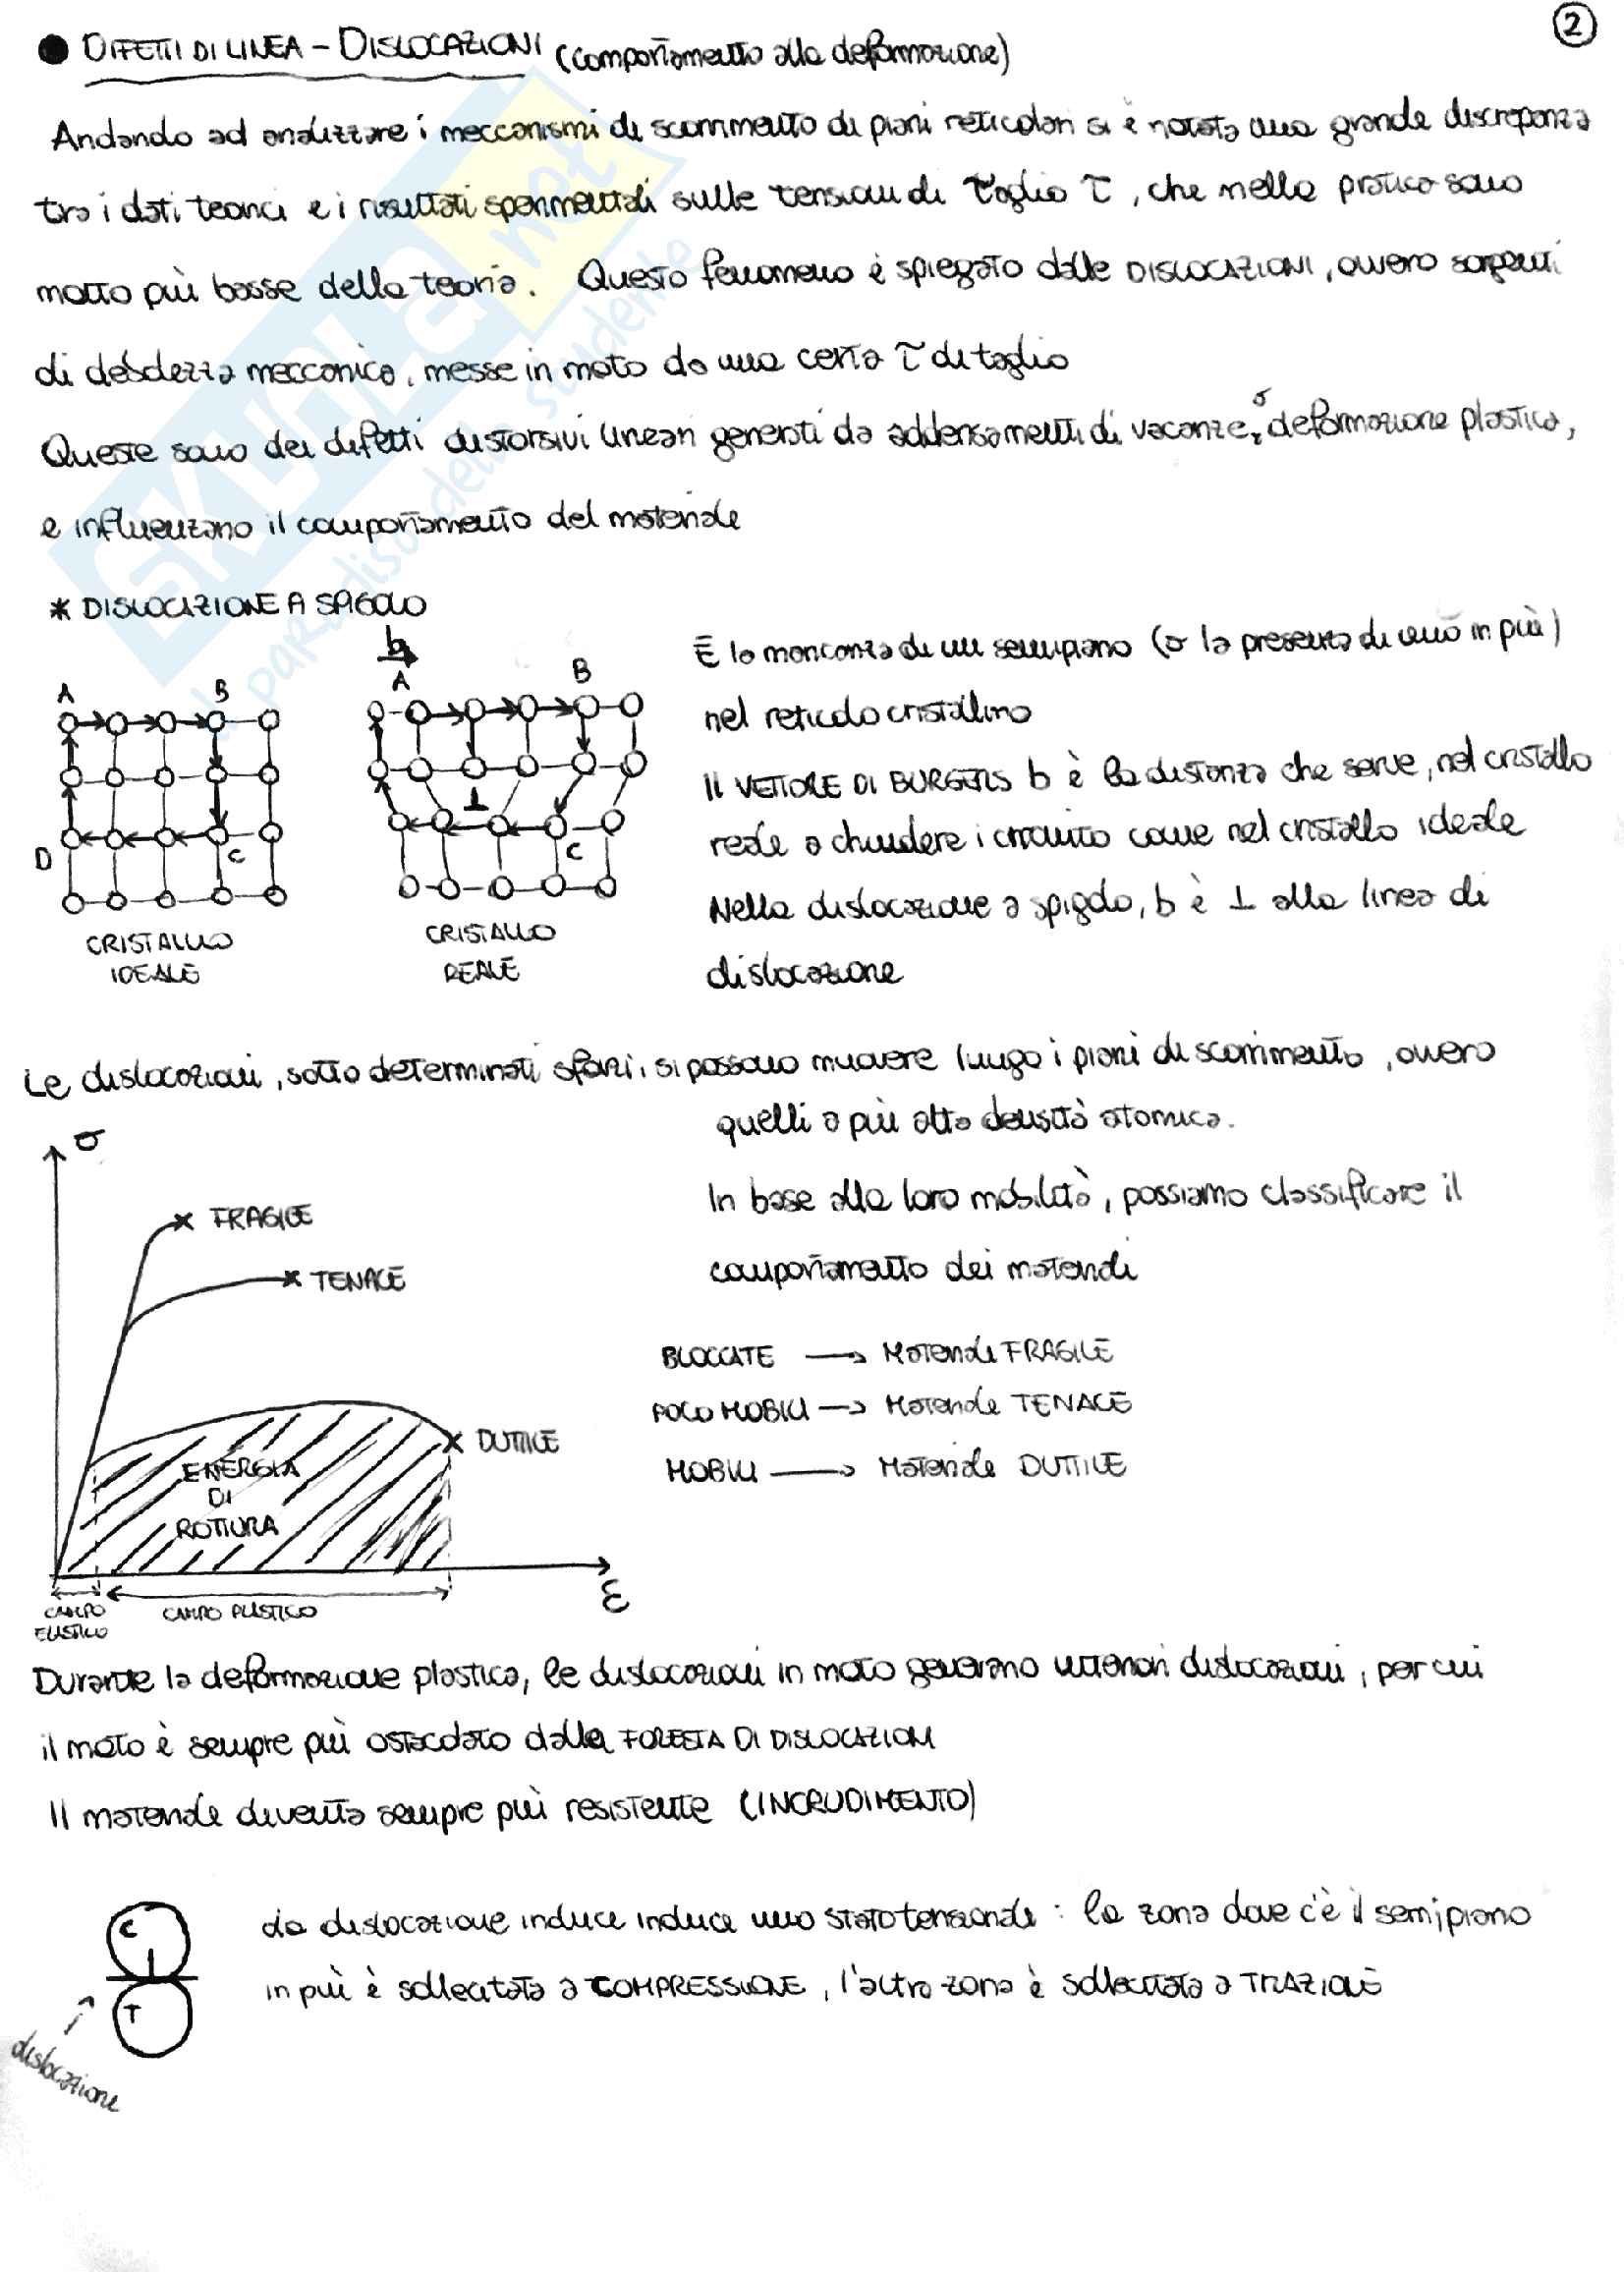 2
DIFETTI DI LINEA - DISLOCAZIONI (comportamento alla deformazione)
Andando ad analizzare i meccanismi di scorrimento di piani reticolari si è notata una grande discrepanza
tra i dati teorici e i risultati sperimentali sulle tensioni di taglio τ, che nella pratica sono
molto più basse della teoria. Questo fenomeno è spiegato dalle DISLOCAZIONI, ovvero sorgenti
di debolezza meccanica, messe in moto da una certa τ di taglio
Queste sono dei difetti distorsivi lineari generati da addensamenti di vacanze, o deformazione plastica,
e influenzano il comportamento del materiale
* DISLOCAZIONE A SPIGOLO
b
A B
A B
D C
C
CRISTALLO
IDEALE
CRISTALLO
REALE
È la mancanza di un semipiano (o la presenza di uno in più)
nel reticolo cristallino
Il VETTORE DI BURGERS b è la distanza che serve, nel cristallo
reale a chiudere i circuito come nel cristallo ideale
Nella dislocazione a spigolo, b è ⊥ alla linea di
dislocazione
Le dislocazioni, sotto determinati sforzi, si possono muovere lungo i piani di scorrimento, ovvero
quelli a più alta densità atomica.
In base alla loro mobilità, possiamo classificare il
comportamento dei materiali
BLOCCATE → Materiale FRAGILE
POCO MOBILI → Materiale TENACE
MOBILI → Materiale DUTTILE
σ
FRAGILE
TENACE
DUTTILE
ENERGIA
DI
ROTTURA
ε
CAMPO
ELASTICO
CAMPO PLASTICO
Durante la deformazione plastica, le dislocazioni in moto generano ulteriori dislocazioni, per cui
il moto è sempre più ostacolato dalla FORESTA DI DISLOCAZIONI
Il materiale diventa sempre più resistente (INCRUDIMENTO)
C
T
dislocazione
La dislocazione induce induce uno stato tensionale: la zona dove c'è il semipiano
in più è sollecitata a COMPRESSIONE, l'altra zona è sollecitata a TRAZIONE
SKUOLA.net
il paradiso dello studente